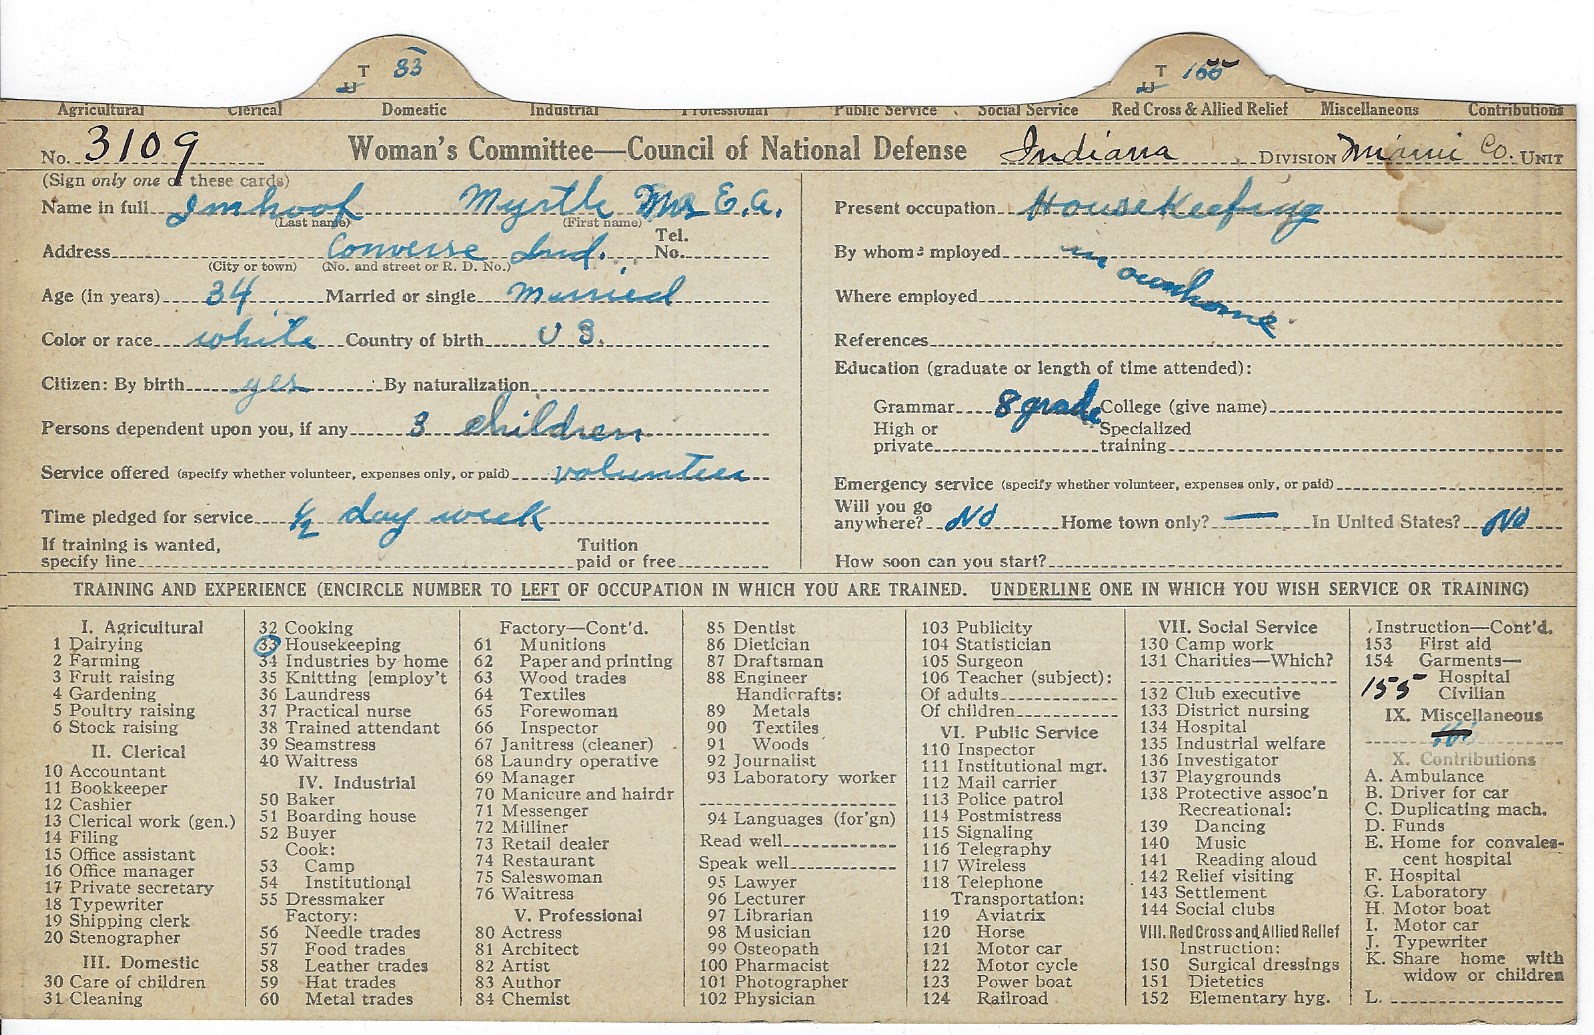 T 33
U
T 155
U
Agricultural Clerical Domestic Industrial Professional Public Service Social Service Red Cross & Allied Relief Miscellaneous Contributions
No. 3109 Woman's Committee—Council of National Defense Indiana DIVISION Miami Co. UNIT
(Sign only one of these cards)
Name in full Imhoof Myrtle Mrs E. A.
(Last name) (First name)
Address Converse Ind. Tel. No.
(City or town) (No. and street or R. D. No.)
Age (in years) 34 Married or single Married
Color or race white Country of birth U S.
Citizen: By birth yes By naturalization
Persons dependent upon you, if any 3 children
Service offered (specify whether volunteer, expenses only, or paid) volunteer
Time pledged for service 1/2 day week
If training is wanted, specify line Tuition paid or free
Present occupation Housekeefing
By whom employed in own home
Where employed
References
Education (graduate or length of time attended):
Grammar 8 grade College (give name)
High or private Specialized training
Emergency service (specify whether volunteer, expenses only, or paid)
Will you go anywhere? No Home town only? — In United States? No
How soon can you start?
TRAINING AND EXPERIENCE (ENCIRCLE NUMBER TO LEFT OF OCCUPATION IN WHICH YOU ARE TRAINED. UNDERLINE ONE IN WHICH YOU WISH SERVICE OR TRAINING)
I. Agricultural
1 Dairying
2 Farming
3 Fruit raising
4 Gardening
5 Poultry raising
6 Stock raising
II. Clerical
10 Accountant
11 Bookkeeper
12 Cashier
13 Clerical work (gen.)
14 Filing
15 Office assistant
16 Office manager
17 Private secretary
18 Typewriter
19 Shipping clerk
20 Stenographer
III. Domestic
30 Care of children
31 Cleaning
32 Cooking
33 Housekeeping
34 Industries by home
35 Knitting [employ't
36 Laundress
37 Practical nurse
38 Trained attendant
39 Seamstress
40 Waitress
IV. Industrial
50 Baker
51 Boarding house
52 Buyer
Cook:
53 Camp
54 Institutional
55 Dressmaker
Factory:
56 Needle trades
57 Food trades
58 Leather trades
59 Hat trades
60 Metal trades
Factory—Cont'd.
61 Munitions
62 Paper and printing
63 Wood trades
64 Textiles
65 Forewoman
66 Inspector
67 Janitress (cleaner)
68 Laundry operative
69 Manager
70 Manicure and hairdr
71 Messenger
72 Milliner
73 Retail dealer
74 Restaurant
75 Saleswoman
76 Waitress
V. Professional
80 Actress
81 Architect
82 Artist
83 Author
84 Chemist
85 Dentist
86 Dietician
87 Draftsman
88 Engineer
Handicrafts:
89 Metals
90 Textiles
91 Woods
92 Journalist
93 Laboratory worker
94 Languages (for'gn)
Read well
Speak well
95 Lawyer
96 Lecturer
97 Librarian
98 Musician
99 Osteopath
100 Pharmacist
101 Photographer
102 Physician
103 Publicity
104 Statistician
105 Surgeon
106 Teacher (subject):
Of adults
Of children
VI. Public Service
110 Inspector
111 Institutional mgr.
112 Mail carrier
113 Police patrol
114 Postmistress
115 Signaling
116 Telegraphy
117 Wireless
118 Telephone
Transportation:
119 Aviatrix
120 Horse
121 Motor car
122 Motor cycle
123 Power boat
124 Railroad
VII. Social Service
130 Camp work
131 Charities—Which?
132 Club executive
133 District nursing
134 Hospital
135 Industrial welfare
136 Investigator
137 Playgrounds
138 Protective assoc'n
Recreational:
139 Dancing
140 Music
141 Reading aloud
142 Relief visiting
143 Settlement
144 Social clubs
VIII. Red Cross and Allied Relief
Instruction:
150 Surgical dressings
151 Dietetics
152 Elementary hyg.
Instruction—Cont'd.
153 First aid
154 Garments—
Hospital
155 Civilian
IX. Miscellaneous
X. Contributions
A. Ambulance
B. Driver for car
C. Duplicating mach.
D. Funds
E. Home for convalescent hospital
F. Hospital
G. Laboratory
H. Motor boat
I. Motor car
J. Typewriter
K. Share home with
widow or children
L.